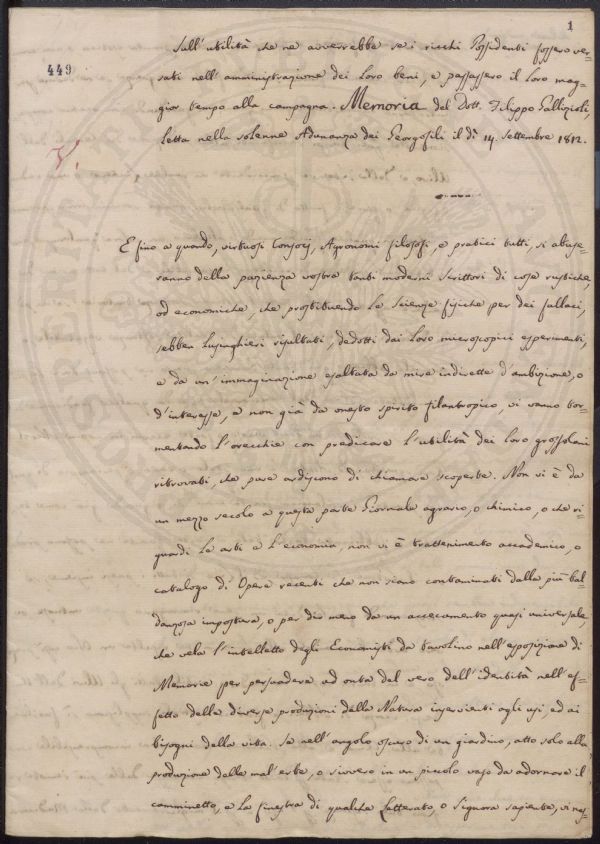 1
449
Sull'utilità che ne avverrebbe se i ricchi Possidenti fossero ver-
sati nell'amministrazione dei loro beni, e passassero il loro mag-
gior tempo alla campagna. Memoria del Dott. Filippo Gallizioli,
Letta nella solenne Adunanza dei Georgofili il dì 14. Settembre 1812.
E fino a quando, virtuosi Consocj, Agronomi filosofi, e pratici tutti, si abuse-
ranno della pazienza vostra tanti moderni Scrittori di cose rustiche,
od economiche, che prostituendo le Scienze fisiche per dei fallaci,
sebben lusinghieri risultati, dedotti dai loro microscopici esperimenti,
e da un'immaginazione esaltata da mire indirette d'ambizione, o
d'interesse, e non già da onesto spirito filantropico, vi vanno tor-
mentando l'orecchie con predicare l'utilità dei loro grossolani
ritrovati, che pure ardiscono di chiamare scoperte. Non vi è da
un mezzo secolo a questa parte Giornale agrario, o chimico, o che ri-
guardi le arti e l'economia, non vi è trattenimento accademico, o
catalogo di Opere recenti che non siano contaminati dalla più bal-
danzosa impostura, o per dir meno da un accecamento quasi universale,
che vela l'intelletto degli Economisti da tavolino nell'esposizione di
Memorie per persuadere ad onta del vero dell'identità nell'ef-
fetto delle diverse produzioni della Natura inservienti agli usi, ed ai
bisogni della vita. Se nell'angolo oscuro di un giardino, atto solo alla
produzione delle mal'erbe, o sivvero in un piccolo vaso da adornare il
camminetto, e la finestra di qualche Letterato, o Signora sapiente, vi nas-